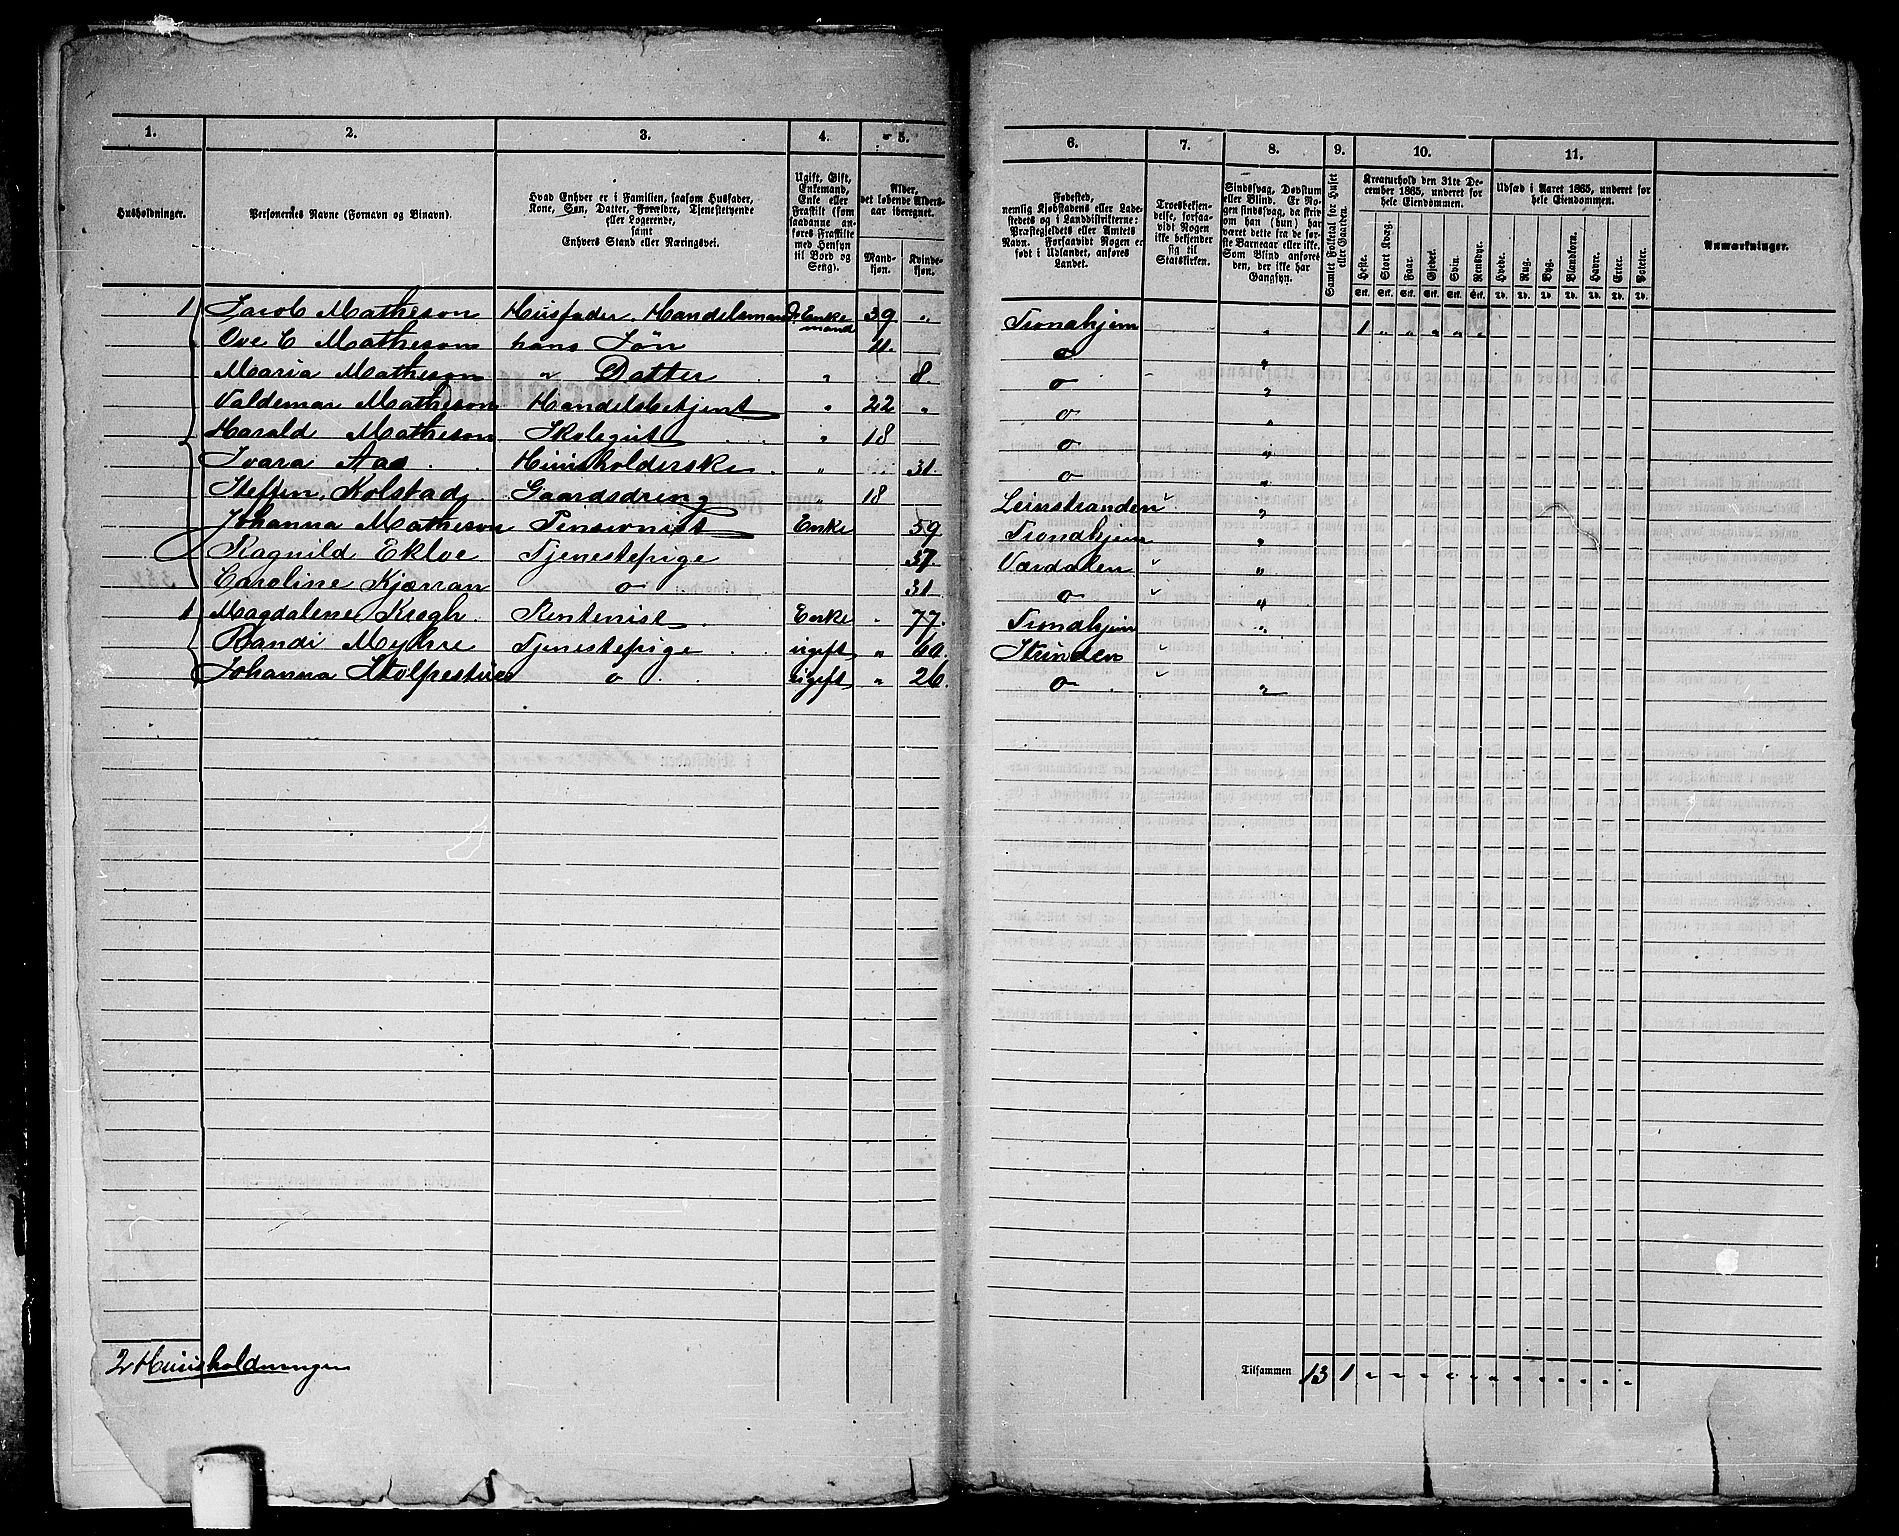 1. 2. 3. 4. 5.
Husholdninger.
Personernes Navne (Fornavn og Binavn).
Hvad Enhver er i Familien, saasom Husfader,
Kone, Søn, Datter, Forældre, Tjenestetyende
eller Logerende,
samt
Enhvers Stand eller Næringsvei.
Ugift, Gift,
Enkemand,
Enke eller
Fraskilt (som
saadanne an-
føres Fraskilte
med Hensyn
til Bord og
Seng).
Alder,
det løbende Alders-
aar iberegnet.
Mand-
kjøn.
Kvinde-
kjøn.
1 Jacob Matheson Husfader. Handelsmand Enke
mand 39 "
Ove C Matheson hans Søn 11.
Maria Matheson " Datter " 8.
Valdemar Matheson Handelsbetjent " 22 "
Harald Matheson Skolegut " 18
Ivara Aas Huusholderske " 31.
Steffen Kolstad Gaardsdreng " 18
Johanna Matheson Pensionist Enke 59
Ragnild Ekloe Tjenestepige 37.
Caroline Kjærran o 31
1 Magdalene Krogh Rentenist Enke " 77.
Randi Myhre Tjenestepige ugift " 60
Johanna o ugift " 26.
2 Huusholdninger
6. 7. 8. 9. 10. 11.
Fødested,
nemlig Kjøbstadens eller Lade-
stedets og i Landdistrikterne:
Præstegjeldets eller Amtets
Navn. Forsaavidt Nogen er
født i Udlandet, anføres
Landet.
Troesbekjen-
delse, forsaa-
vidt Nogen
ikke bekjender
sig til
Statskirken.
Sindssvag, Døvstum
eller Blind. Er No-
gen sindssvag, da skriv
om han (hun) har
været dette fra de før-
ste Barneaar eller ikke.
Som Blind anføres
den, der ikke har
Gangsyn.
Samlet Folketal for Huset
eller Gaarden.
Kreaturhold den 31te De-
cember 1865, underet for
hele Eiendommen.
Heste. Stort Kvæg. Faar. Gjeder. Svin. Rensdyr.
Stk. Stk. Stk. Stk. Stk. Stk.
Udsæd i Aaret 1865, underet for
hele Eiendommen.
Hvede. Rug. Byg. Blandkorn. Havre. Erter. Poteter.
Td. Td. Td. Td. Td. Td. Td.
Anmærkninger.
Trondhjem " 1 " " " " "
o "
o "
o "
o "
o "
Leinstranden "
Trondhjem "
Værdalen "
o "
Trondhjem "
Strinden
o "
Tilsammen 13 1 " " " " " " " " " " " "